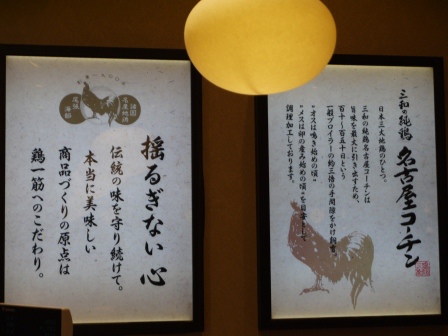 諸国
名産地鶏
揺るぎない心
伝統の味を守り続けて。
本当に美味しい
商品づくりの原点は
鶏一筋へのこだわり。
三和の純鶏
名古屋コーチン
日本三大地鶏のひとつ。
三和の純鶏名古屋コーチンは
旨味を最大に引き出すため、
百十〜百五十日という
一般ブロイラーの約三倍の手間隙をかけ飼育。
"オスは鳴き始めの頃"
"メスは卵の産み始めの頃"を目安にして
調理加工しております。